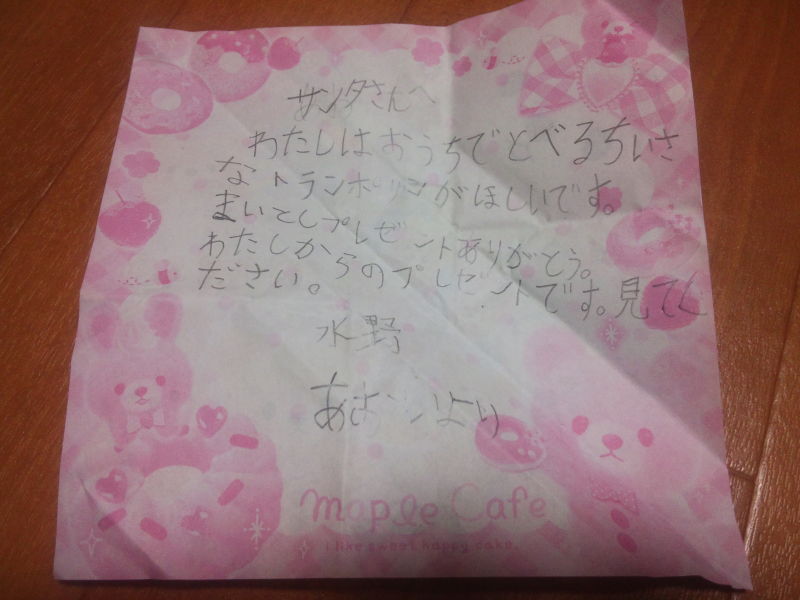 サンタさんへ
わたしはおうちでとべるちいさ
なトランポリンがほしいです。
まいとしプレゼントありがとう。
わたしからのプレゼントです。見てく
ださい。
水野
より
maple Cafe
I like sweet happy cake.